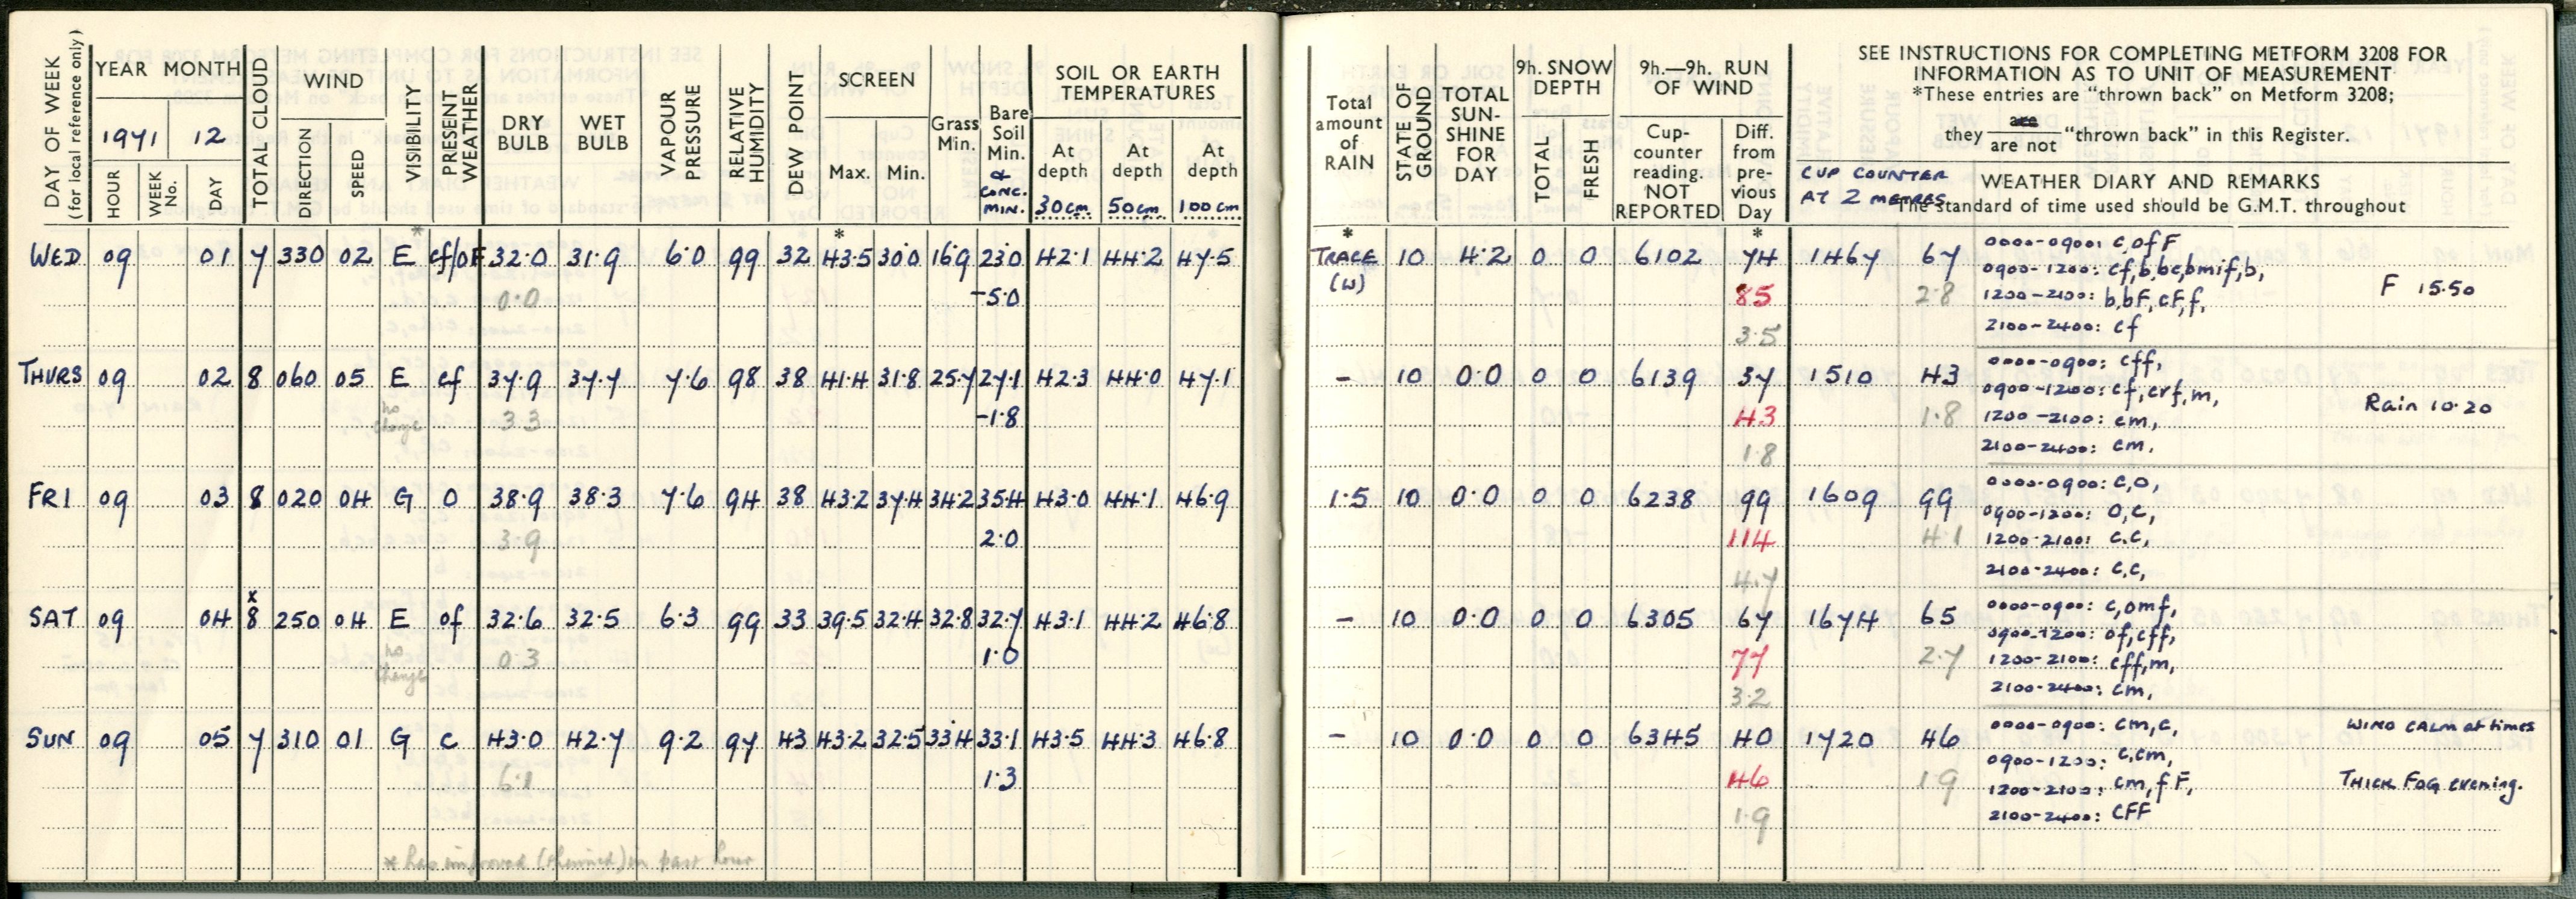 DAY OF WEEK
(for local reference only)
YEAR MONTH
1971 12
HOUR
WEEK No.
DAY
TOTAL CLOUD
WIND
DIRECTION
SPEED
VISIBILITY
PRESENT WEATHER
DRY BULB
WET BULB
VAPOUR PRESSURE
RELATIVE HUMIDITY
DEW POINT
SCREEN
Max. Min.
Grass Min.
Bare Soil Min.
& CONC. MIN.
SOIL OR EARTH TEMPERATURES
At depth 30cm
At depth 50cm
At depth 100cm
WED 09 01 7 330 02 E * cf/oF 32.0 31.9 6.0 99 32 * 43.5 30.0 16.9 23.0 42.1 44.2 47.5
0.0 -5.0
THURS 09 02 8 060 05 E cf 37.9 37.7 7.6 98 38 41.4 31.8 25.7 27.1 42.3 44.0 47.1
no change 3.3 -1.8
FRI 09 03 8 020 04 G O 38.9 38.3 7.6 94 38 43.2 37.4 34.2 35.4 43.0 44.1 46.9
3.9 2.0
x
SAT 09 04 8 250 04 E of 32.6 32.5 6.3 99 33 39.5 32.4 32.8 32.7 43.1 44.2 46.8
no change 0.3 1.0
SUN 09 05 7 310 01 G c 43.0 42.7 9.2 97 43 43.2 32.5 33.4 33.1 43.5 44.3 46.8
6.1 1.3
* has improved (thinned) in past hour
Total amount of RAIN
STATE OF GROUND
TOTAL SUN-SHINE FOR DAY
9h. SNOW DEPTH
TOTAL
FRESH
9h.—9h. RUN OF WIND
Cup-counter reading. NOT REPORTED
Diff. from pre-vious Day
SEE INSTRUCTIONS FOR COMPLETING METFORM 3208 FOR
INFORMATION AS TO UNIT OF MEASUREMENT
*These entries are "thrown back" on Metform 3208;
they are / are not "thrown back" in this Register.
CUP COUNTER
AT 2 METRES
WEATHER DIARY AND REMARKS
The standard of time used should be G.M.T. throughout
* TRACE (W) 10 4.2 0 0 6102 * 74 1467 67
85 2.8
3.5
0000-0900: c,ofF
0900-1200: cf,b,bc,bmif,b,
1200-2100: b,bF,cF,f,
2100-2400: cf
F 15.50
- 10 0.0 0 0 6139 37 1510 43
43 1.8
1.8
0000-0900: cff,
0900-1200: cf,crf,m,
1200-2100: cm,
2100-2400: cm,
Rain 10.20
1.5 10 0.0 0 0 6238 99 1609 99
114 4.1
4.7
0000-0900: c,o,
0900-1200: O,C,
1200-2100: c.c,
2100-2400: c,c,
- 10 0.0 0 0 6305 67 1674 65
77 2.7
3.2
0000-0900: c,omf,
0900-1200: of,cff,
1200-2100: cff,m,
2100-2400: cm,
- 10 0.0 0 0 6345 40 1720 46
46 1.9
1.9
0000-0900: cm,c,
0900-1200: c,cm,
1200-2100: cm,fF,
2100-2400: CFF
WIND CALM at times
THICK FOG evening.